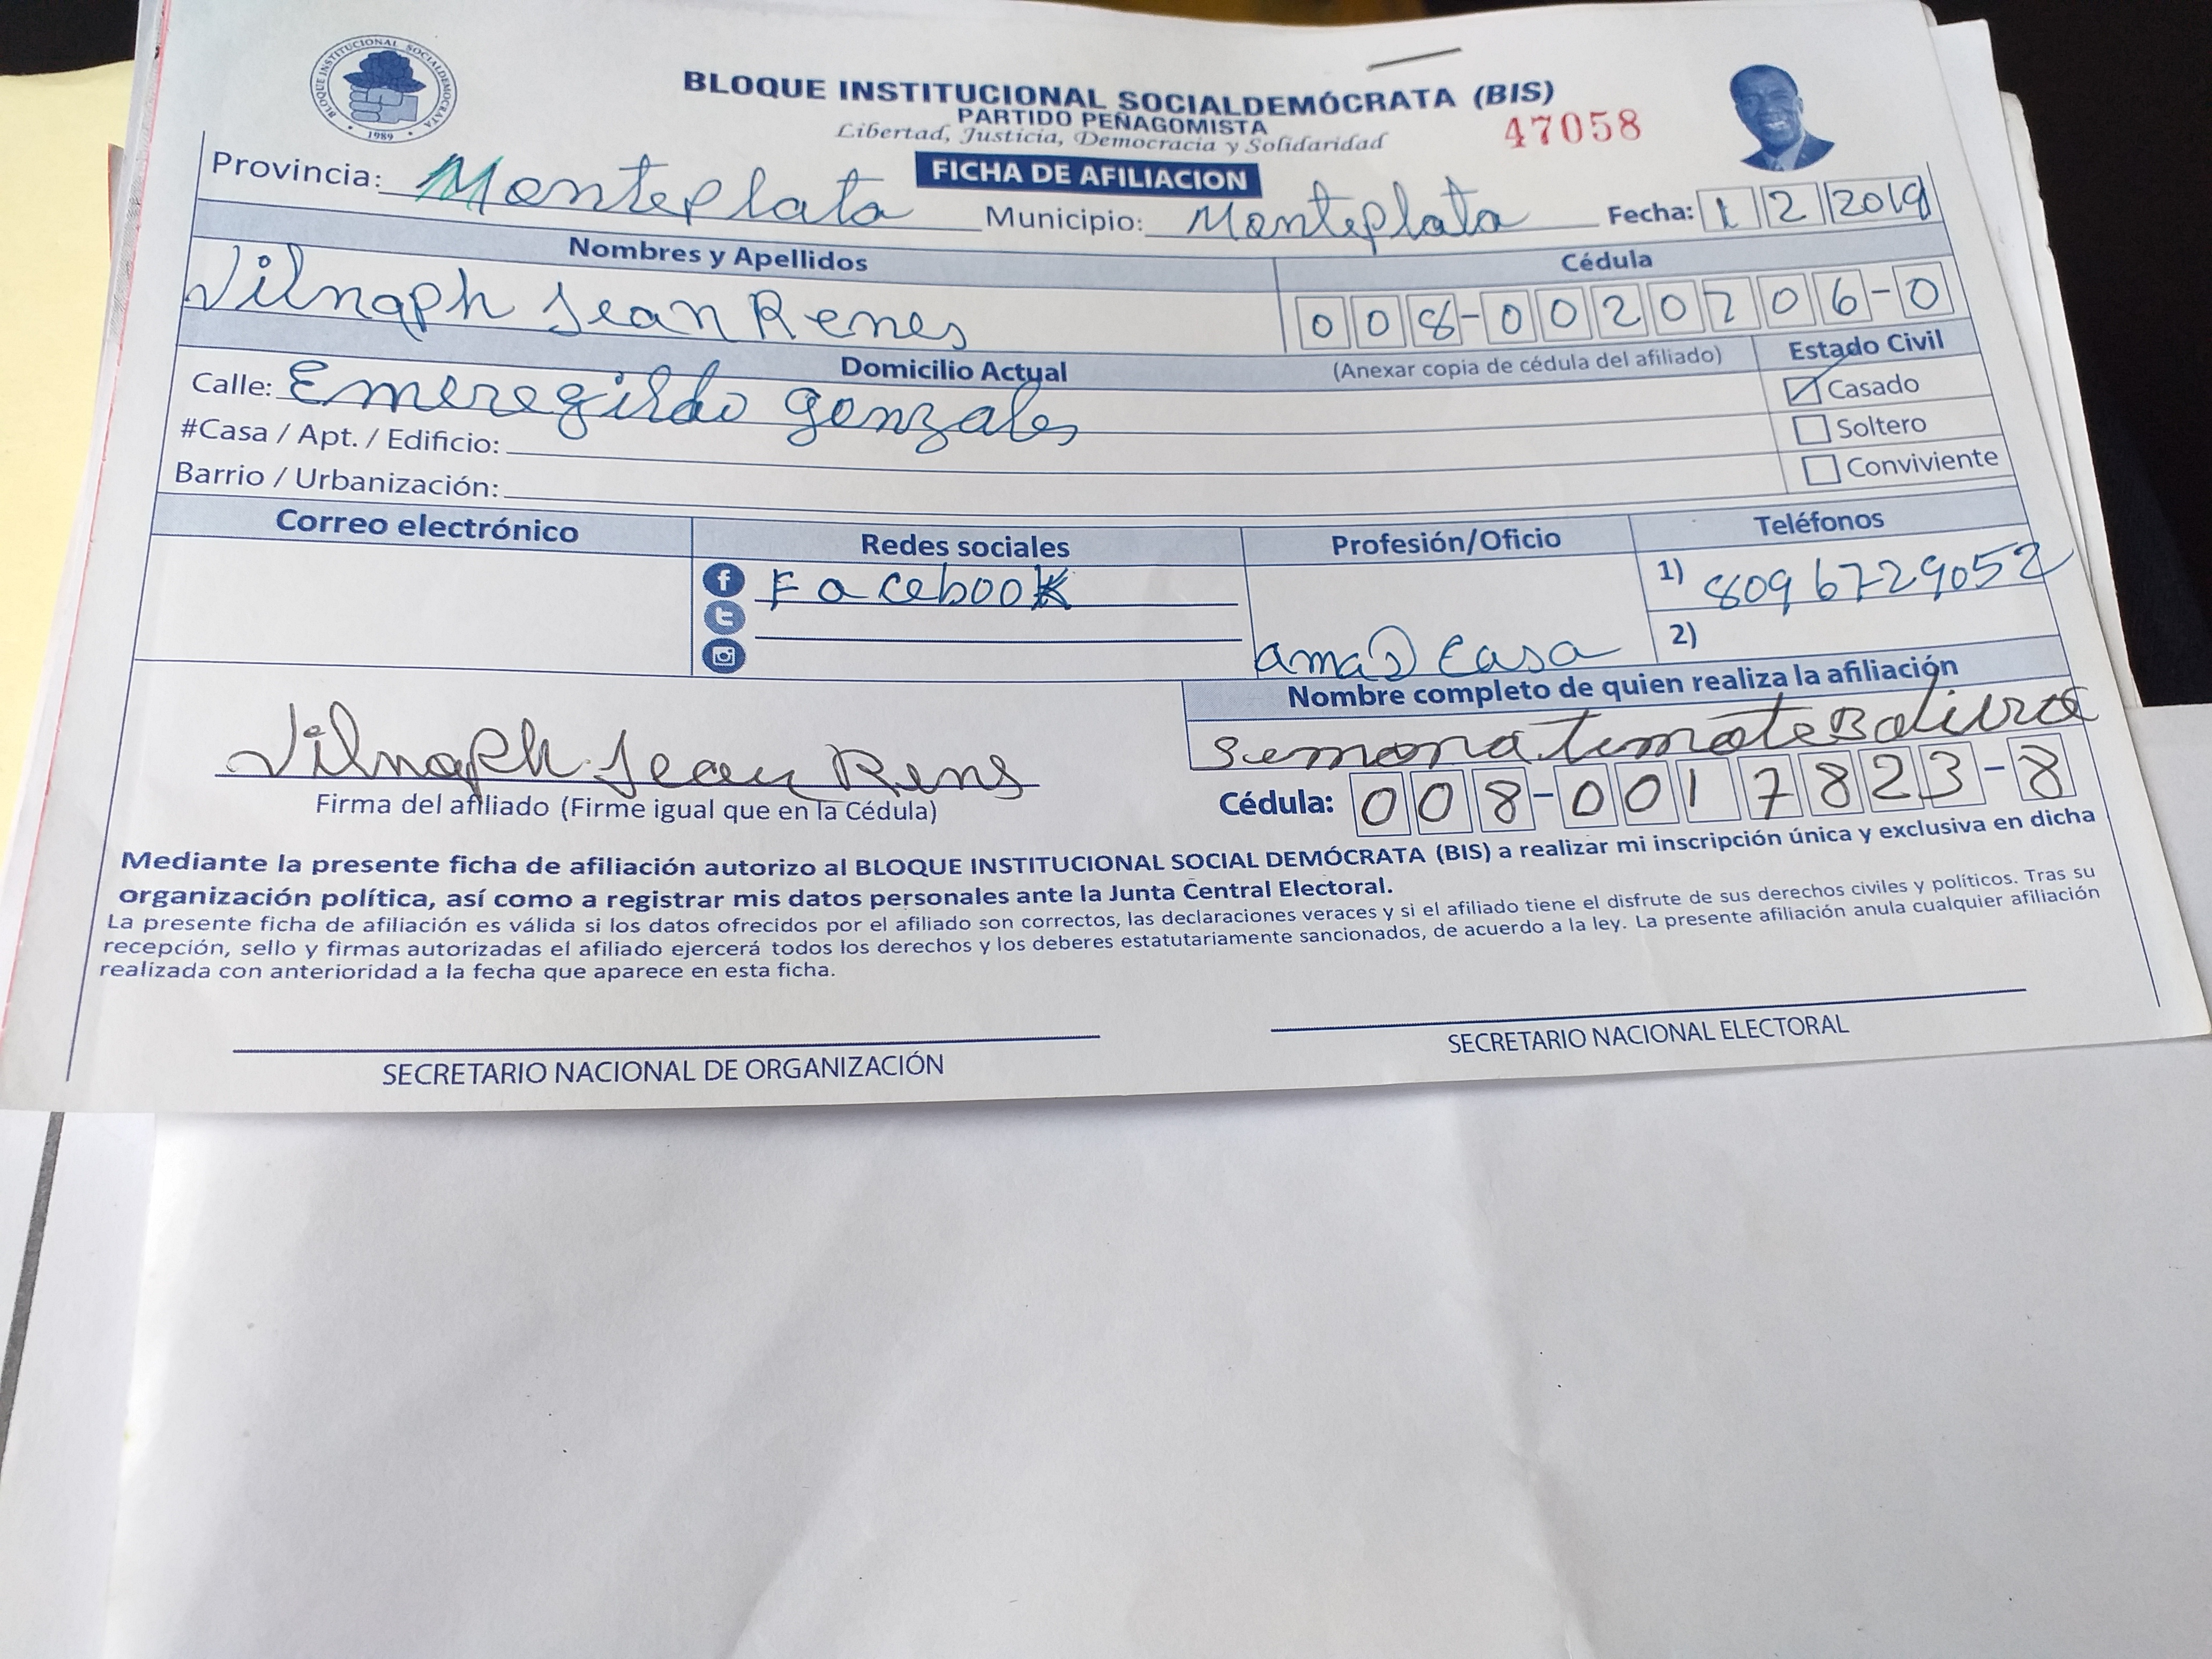 BLOQUE INSTITUCIONAL SOCIALDEMOCRATA
1989
BLOQUE INSTITUCIONAL SOCIALDEMÓCRATA (BIS)
PARTIDO PEÑAGOMISTA
Libertad, Justicia, Democracia y Solidaridad
47058
FICHA DE AFILIACION
Provincia: Monteplata Municipio: Monteplata Fecha: 1 2 2019
Nombres y Apellidos Cédula
Vilnaph Jean Renes 008-0020706-0
Domicilio Actual (Anexar copia de cédula del afiliado) Estado Civil
Calle: Emeregildo gonzales
Casado
#Casa / Apt. / Edificio:
Soltero
Barrio / Urbanización:
Conviviente
Correo electrónico Redes sociales Profesión/Oficio Teléfonos
Facebook
1) 8096729052
2)
ama D casa
Nombre completo de quien realiza la afiliación
Vilnaph Jean Rens
Firma del afiliado (Firme igual que en la Cédula)
Cédula: 008-0017823-8
Mediante la presente ficha de afiliación autorizo al BLOQUE INSTITUCIONAL SOCIAL DEMÓCRATA (BIS) a realizar mi inscripción única y exclusiva en dicha
organización política, así como a registrar mis datos personales ante la Junta Central Electoral.
La presente ficha de afiliación es válida si los datos ofrecidos por el afiliado son correctos, las declaraciones veraces y si el afiliado tiene el disfrute de sus derechos civiles y políticos. Tras su
recepción, sello y firmas autorizadas el afiliado ejercerá todos los derechos y los deberes estatutariamente sancionados, de acuerdo a la ley. La presente afiliación anula cualquier afiliación
realizada con anterioridad a la fecha que aparece en esta ficha.
SECRETARIO NACIONAL DE ORGANIZACIÓN
SECRETARIO NACIONAL ELECTORAL